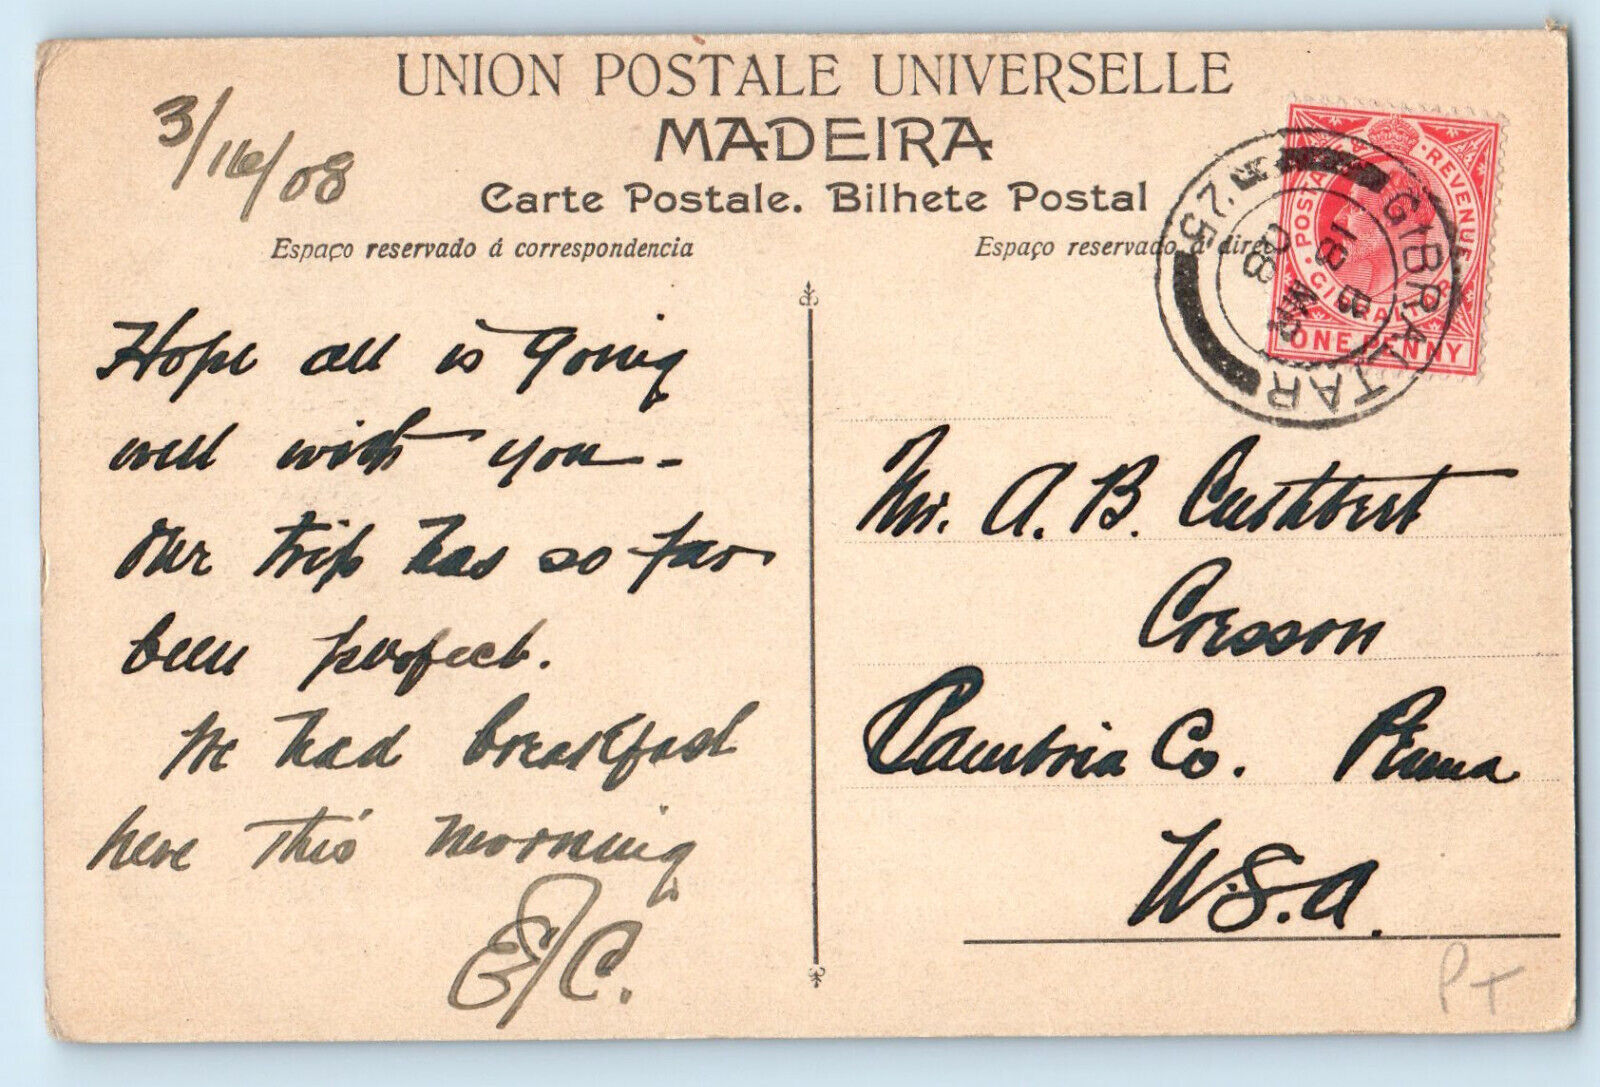 UNION POSTALE UNIVERSELLE
MADEIRA
Carte Postale. Bilhete Postal
Espaço reservado á correspondencia
Espaço reservado á direc
3/16/08
Hope all is going
well with you –
Our trip has so far
been perfect.
We had breakfast
here this morning
E/C.
POSTA REVENUE
GIBRALTAR
ONE PENNY
GIBRALTAR
MR 18
08
25
Mr. A. B. Cuthbert
Cresson
Cambria Co. Penna
U.S.A.
PT